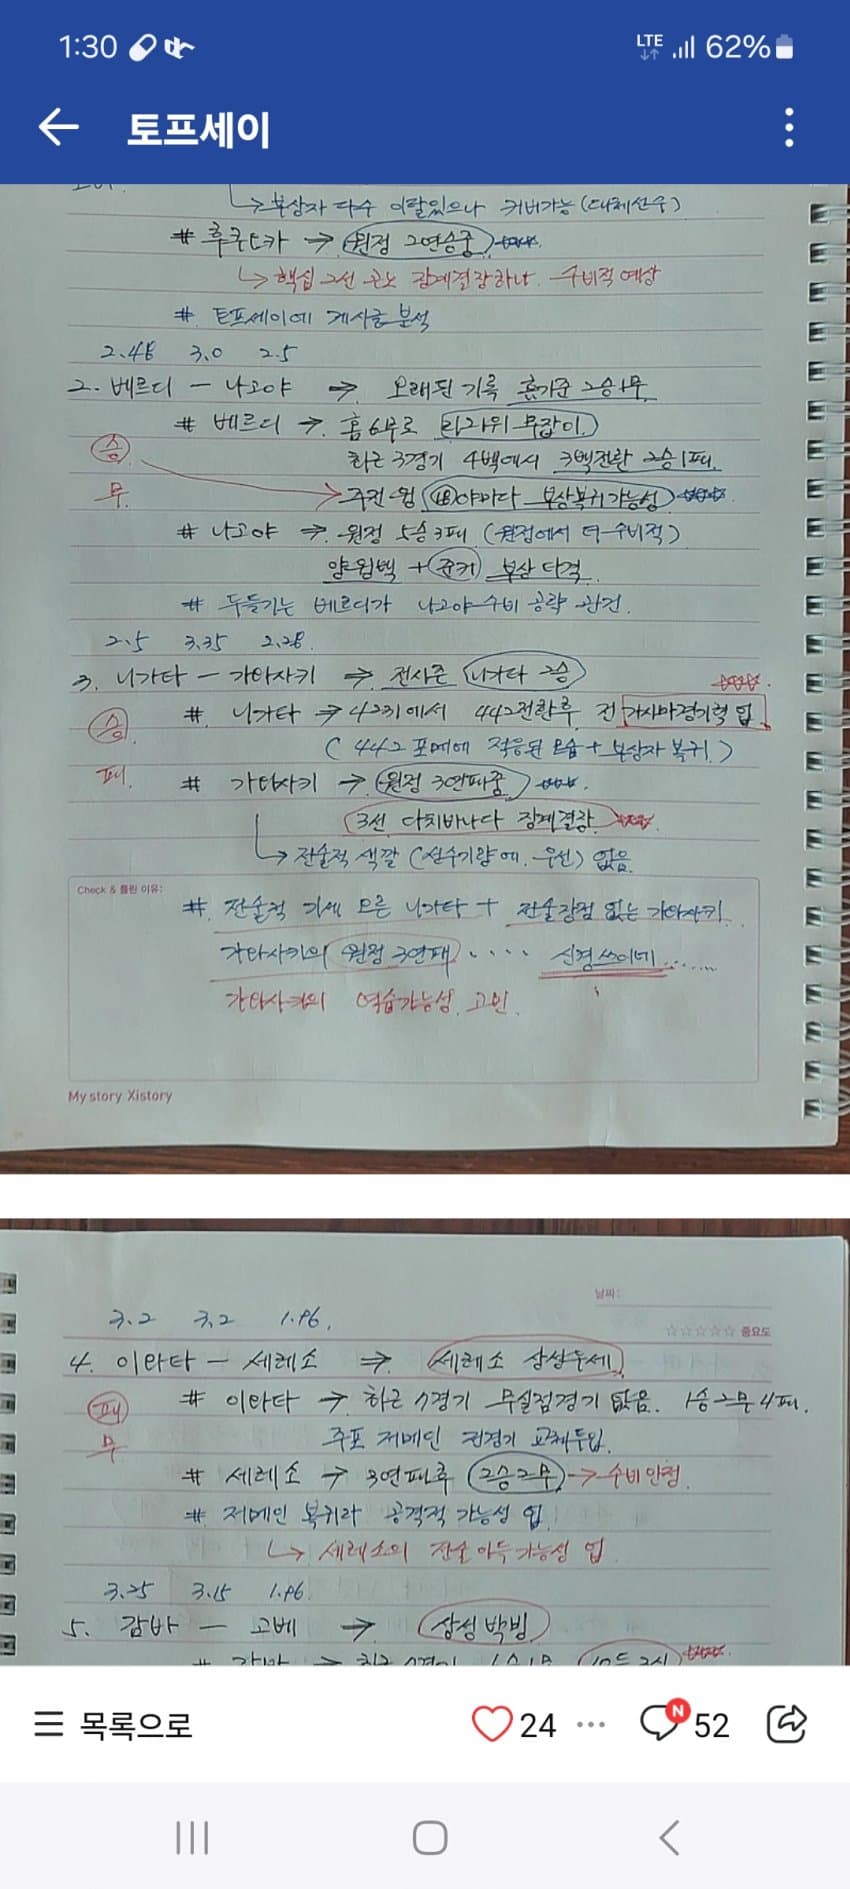 1:30 LTE 62%
토프세이
↳ 부상자 다수 이탈있으나 커버가능 (대체선수)
# 후쿠오카 → 원정 2연승중
↳ 핵심 2선 곤노 징계결장하나 수비적 예상
# 토프세이에 게시글 분석
2.48 3.0 2.5
2. 베르디 - 나고야 ⇒ 오래된 기록 홈기준 2승1무
# 베르디 → 홈 6무로 리그위 무잡이
승 최근 3경기 4백에서 3백전환 2승1패
무 주전 윙 (18)야마다 부상복귀가능성
# 나고야 ⇒ 원정 5승3패 (원정에서 더 수비적)
양윙백 + 쥰키 부상 타격
# 두들기는 베르디가 나고야 수비 공략 관건.
2.5 3.35 2.28
3. 니가타 - 가와사키 ⇒ 전시즌 니가타 2승
승 # 니가타 → 4231에서 442전환후 전 가시마경기력 업
( 442 포메에 적응된 모습 + 부상자 복귀 )
패. # 가와사키 → 원정 3연패중
3선 다치바나다 징계결장
↳ 전술적 색깔 (선수기량에 우선) 없음
Check & 틀린 이유:
# 전술적 기세 오른 니가타 + 전술장점 없는 가와사키
가와사키의 원정 3연패 . . . . 신경쓰이네......
가와사키의 역습가능성 고민.
My story Xistory
날짜:
3.2 3.2 1.96
☆☆☆☆☆ 중요도
4. 이와타 - 세레소 ⇒ 세레소 상성우세
패 # 이와타 → 최근 7경기 무실점경기 없음. 1승2무4패.
무 주포 저메인 전경기 교체투입
# 세레소 → 3연패후 2승2무 → 수비안정
# 저메인 복귀라 공격적 가능성 업
↳ 세레소의 전술 아두가능성 업
3.25 3.15 1.96
5. 감바 - 고베 → 상성 박빙
# 감바 → 최근
목록으로 24 N 52